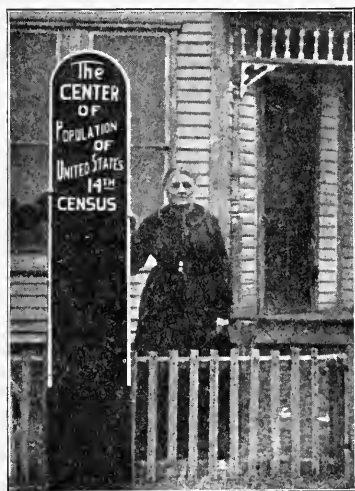 The
CENTER
OF
POPULATION
OF
UNITED STATES
14TH
CENSUS